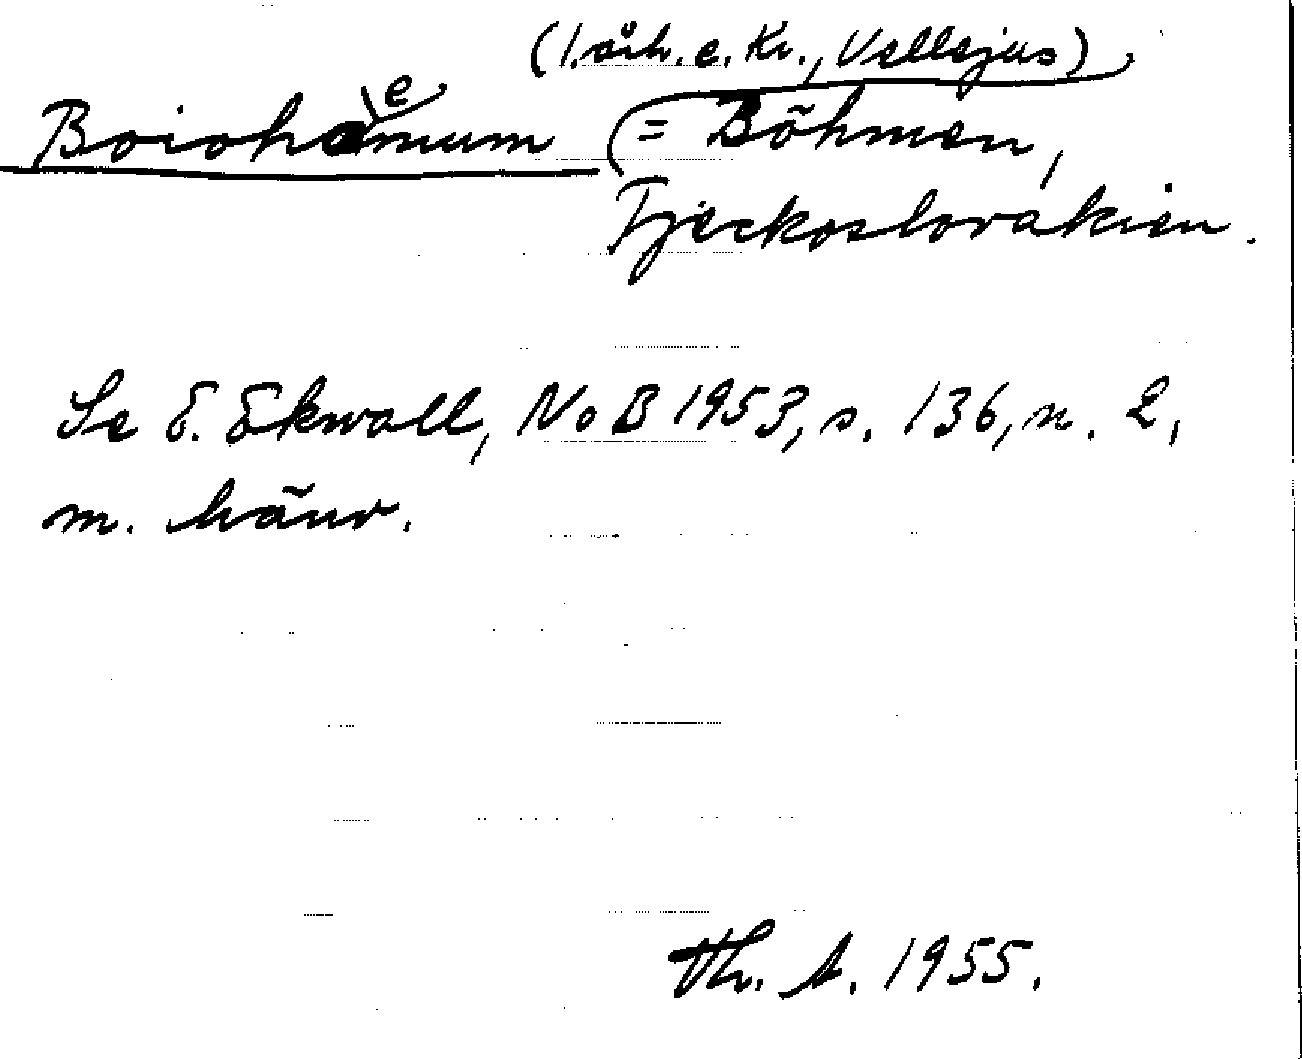 (1. årh. e. Kr., Vellejus)
Boiohemum (= Böhmen,
Tjeckoslovakien.
Se E. Ekwall, NoB 1953, s. 136, n. 2,
m. hänv.
Th. A. 1955.